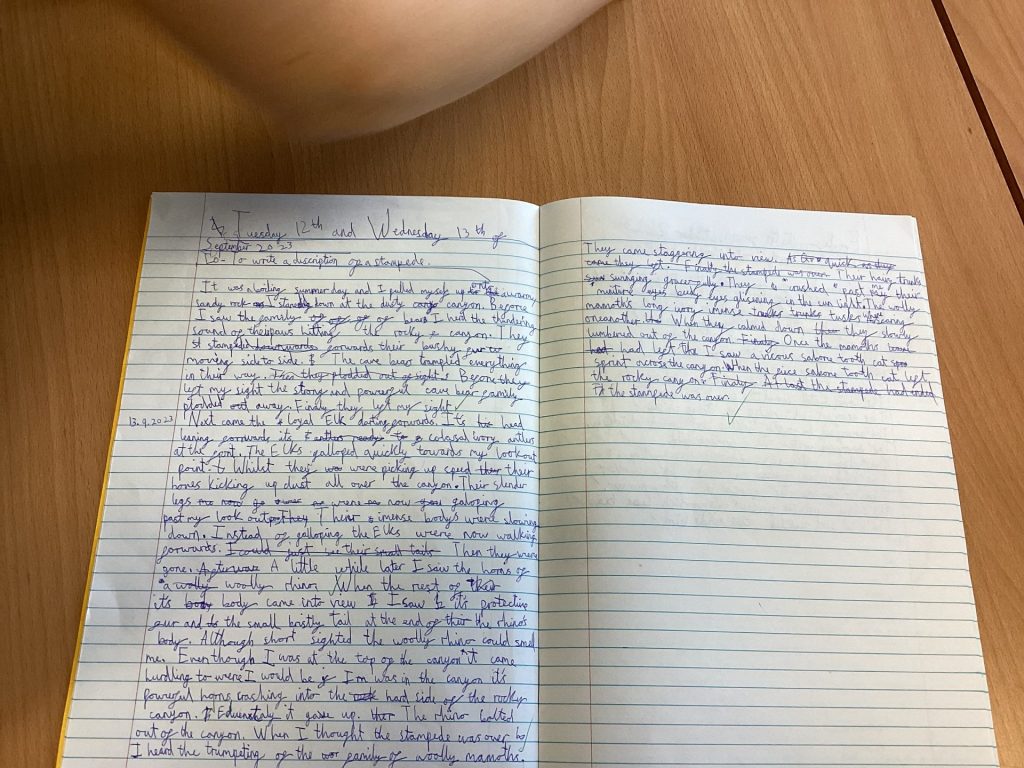 Tuesday 12th and Wednesday 13th of
September 2023
LO- To write a discription of a stampede.
onto
It was a boiling summer day and I pulled myself up a warm
sandy rock I down at the dusty canyon. Before
I saw the family of bears I heard the thundering
sound of their paws hitting the rocky canyon. They
stamped downwards forwards their bushy
moving side to side. The cave bears trampled everything
in their way. Then they plodded out of sight. Before they
left my sight the strong and powerful cave bear family
plodded away. Finaly they left my sight
13.9.2023 Next came the Loyal Elk darting forwards. It's head
leaning forwards its antlers ready to colosal ivory antlers
at the front. The Elks galloped quickly towards my lookout
point. Whilst they were picking up speed their
hoves kicking up dust all over the canyon. Their slender
legs were now galloping
past my look out imense bodys were slowing
down. Instead of galloping the Elks were now walking
forwards. I could just see their small tails Then they were
gone. A little while later I saw the horns of
a wolly woolly rhino. When the rest of
it's body body came into view I saw it's protective
fur and the small bristly tail at the end of the rhino's
body. Although short sighted the woolly rhino could smell
me. Even though I was at the top of the canyon it came
hurdling to were I would be if I'm was in the canyon it's
powerful horns crashing into the hard side of the rocky
canyon. it gave up. The rhino bolted
out of the canyon. When I thought the stampede was over
I heard the trumpeting of the family of woolly mamoths.
They came staggering into view. As quick as they
came they left. Finally the stampede was over. Their hairy trunks
swinging gracefully. They rushed past me their
eyes beedy eyes glisening in the sun light. The woolly
mamoths long ivory imense trunks tusks
oneanother When they calmed down they slowly
lumbured out of the canyon. Finaly Once the mamoths
had left I saw a vicous sabore tooth cat
sprint across the canyon. When the sabore tooth cat left
the rocky canyon. Finaly At last the stampede had ended
the stampede was over.